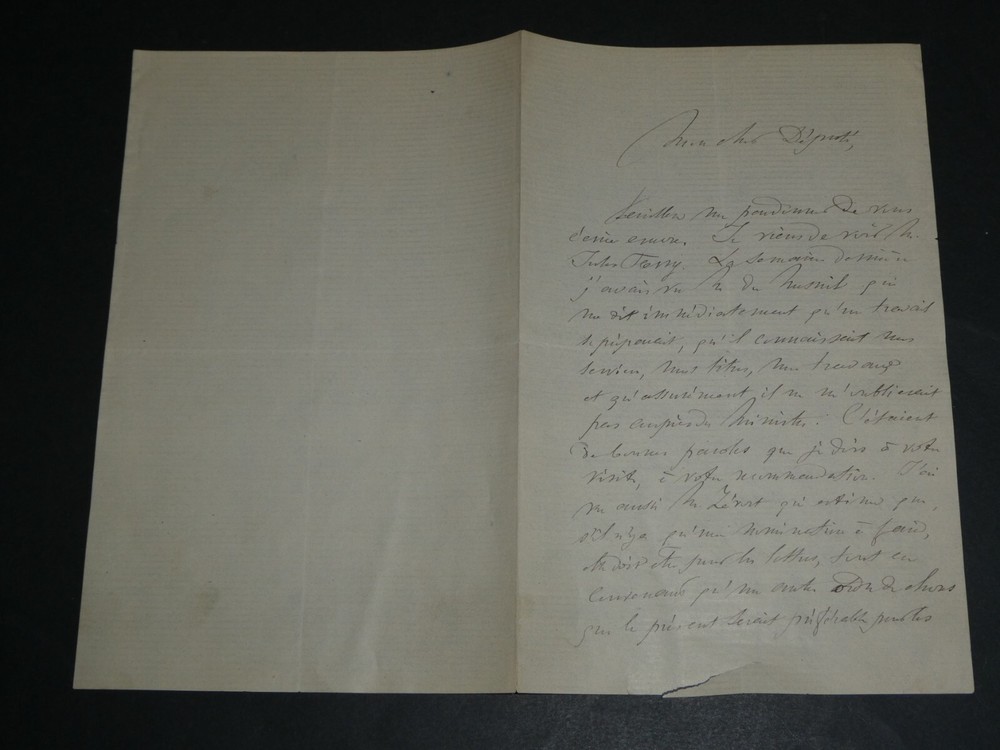 Mon cher Député,
Veuillez me pardonner de vous
écrire encore. Je viens de voir M.
Jules Ferry. La semaine dernière
j'avais vu M. du Mesnil qui
me dit immédiatement qu'un travail
se préparait, qu'il connaissait mes
services, mes titres, mes travaux
et qu'assurément il ne m'oublierait
pas auprès du Ministre. C'étaient
de bonnes paroles que je dois à votre
visite, à votre recommandation. J'ai
vu aussi M. Zévort qui estime que
s'il n'y a qu'une nomination à faire,
elle doit être pour les lettres, tout en
convenant qu'un autre ordre de choses
que le présent serait préférable pour les